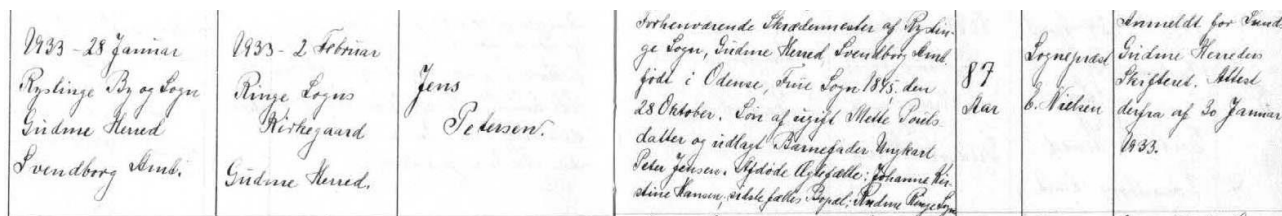 1933 - 28 Januar
Ryslinge By og Sogn
Gudme Herred
Svendborg Amt.
1933 - 2 Februar
Ringe Sogns
Kirkegaard
Gudme Herred.
Jens
Petersen.
Forhenværende Skrædermester af Ryslin-
ge Sogn, Gudme Herred, Svendborg Amt,
født i Odense, Frue Sogn 1845. den
28 Oktober. Søn af ugift Mette Pouls-
datter og udlagt Barnefader Ungkarl
Peter Jensen. Afdøde Ægtefælle: Johanne Kir-
stine Hansen, sidste fælles Bopæl: Rudme Ringe Sogn
87
Aar
Sognepræst
E. Nielsen
Anmeldt for Sunds
Gudme Herreders
Skifteret. Attest
derfra af 30 Januar
1933.